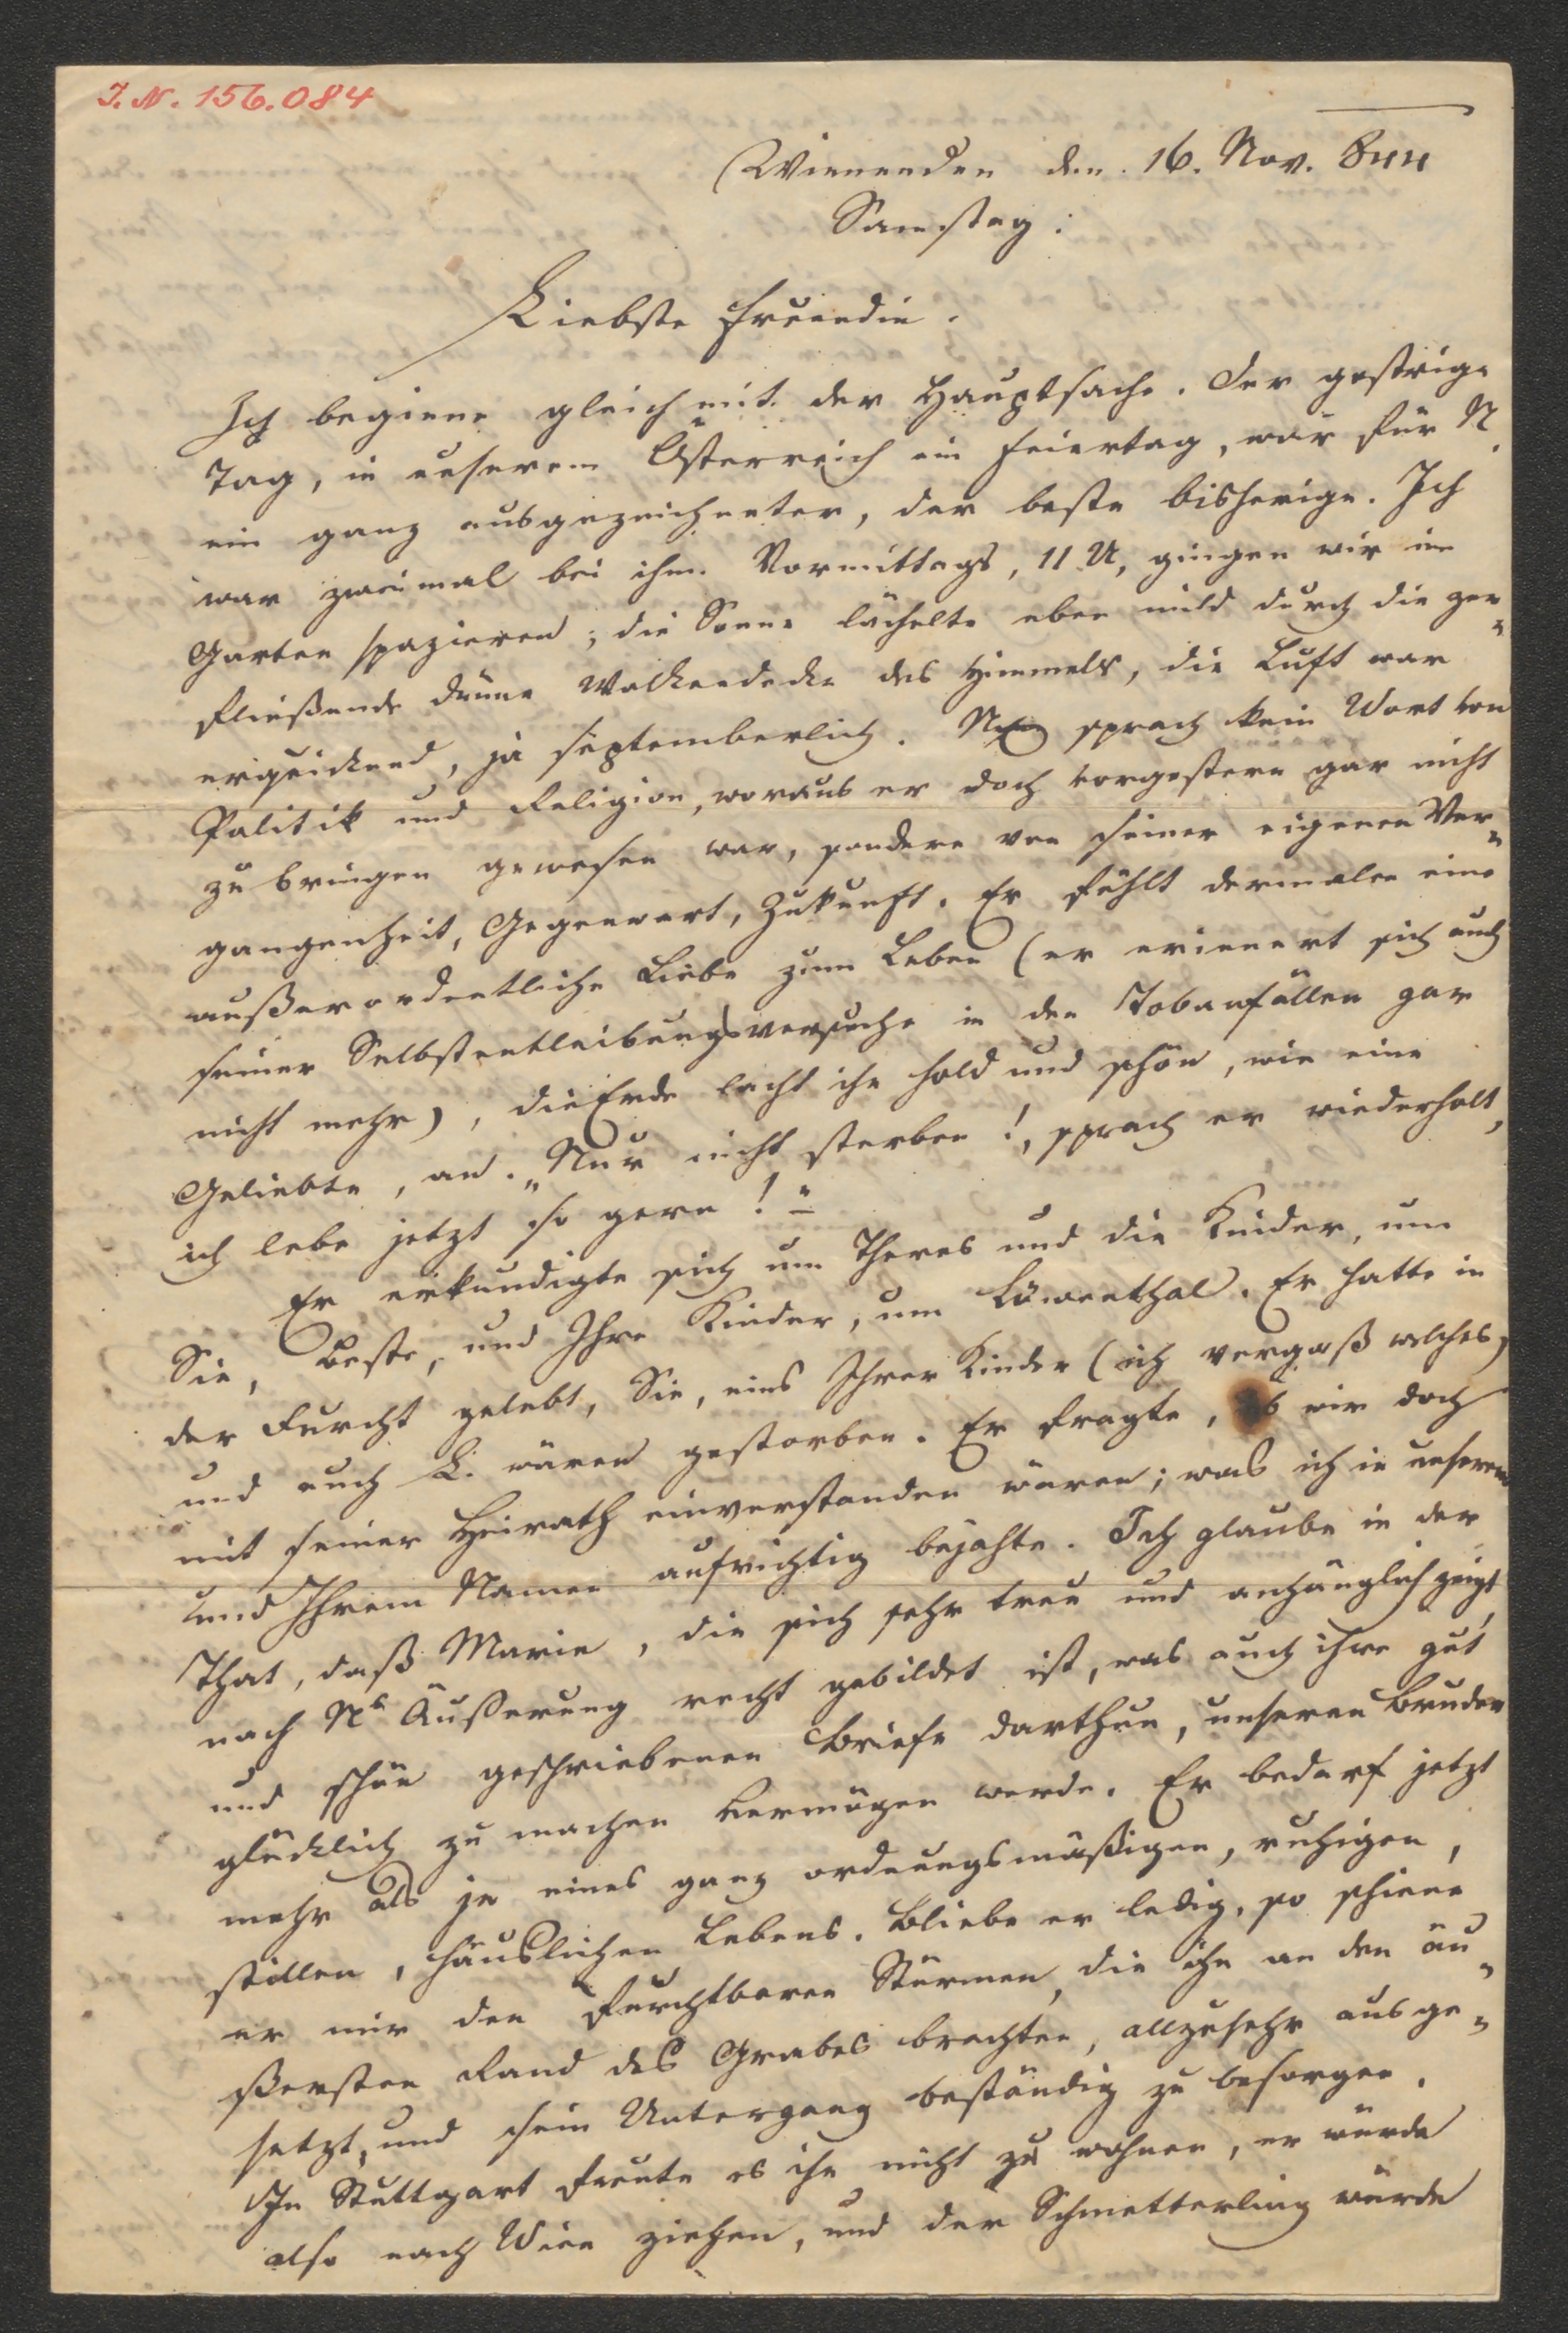 I. N. 156.084
Winenden den 16. Nov. 844
Samstag:
Liebste Freundin.
Ich beginne gleich mit der Hauptsache. Der gestrige
Tag, in unserem Österreich ein Feiertag, war für N.
ein ganz ausgezeichneter, der beste bisherige. Ich
war zweimal bei ihm. Vormittags, 11 U, gingen wir im
Garten spazieren; die Sonne lächelte eben mild durch die zer-
fließende dünne Wolkendecke des Himmels, die Luft war
erquickend, ja septemberlich. sprach kein Wort von
Politik und Religion, woraus er doch vorgestern gar nicht
zu bringen gewesen war, sondern von seiner eigenen Ver-
gangenheit, Gegenwart, Zukunft. Er fühlt dermalen eine
außerordentliche Liebe zum Leben (er erinnert sich auch
seiner Selbstentleibungsversuche in den Tobanfällen gar
nicht mehr), die Erde lacht ihn hold und schön, wie eine
Geliebte, an. „Nur nicht sterben!, sprach er wiederholt,
ich lebe jetzt so gern!"
Er erkundigte sich um Theres und die Kinder, um
Sie, Beste, und Ihre Kinder, um Löwenthal. Er hatte in
der Furcht gelebt, Sie, eins Ihrer Kinder (ich vergaß welches)
und auch L. wären gestorben. Er fragte, ob wir doch
mit seiner Heirath einverstanden wären; was ich in unserem
und Ihrem Namen aufrichtig bejahte. Ich glaube in der
That, daß Marie, die sich sehr treu und anhänglich zeigt,
nach Ns Äußerung recht gebildet ist, was auch ihre gut
und schön geschriebenen Briefe darthun, unseren Bruder
glücklich zu machen vermögen werde. Er bedarf jetzt
mehr als je eines ganz ordnungsmäßigen, ruhigen,
stillen, häuslichen Lebens. Bliebe er ledig, so schiene
er mir den furchtbaren Stürmen, die ihn an den äu-
ßersten Rand des Grabes brachten, allzusehr ausge-
setzt, und sein Untergang beständig zu besorgen.
In Stuttgart freute es ihn nicht zu wohnen, er würde
also nach Wien ziehen, und der Schmetterling würde